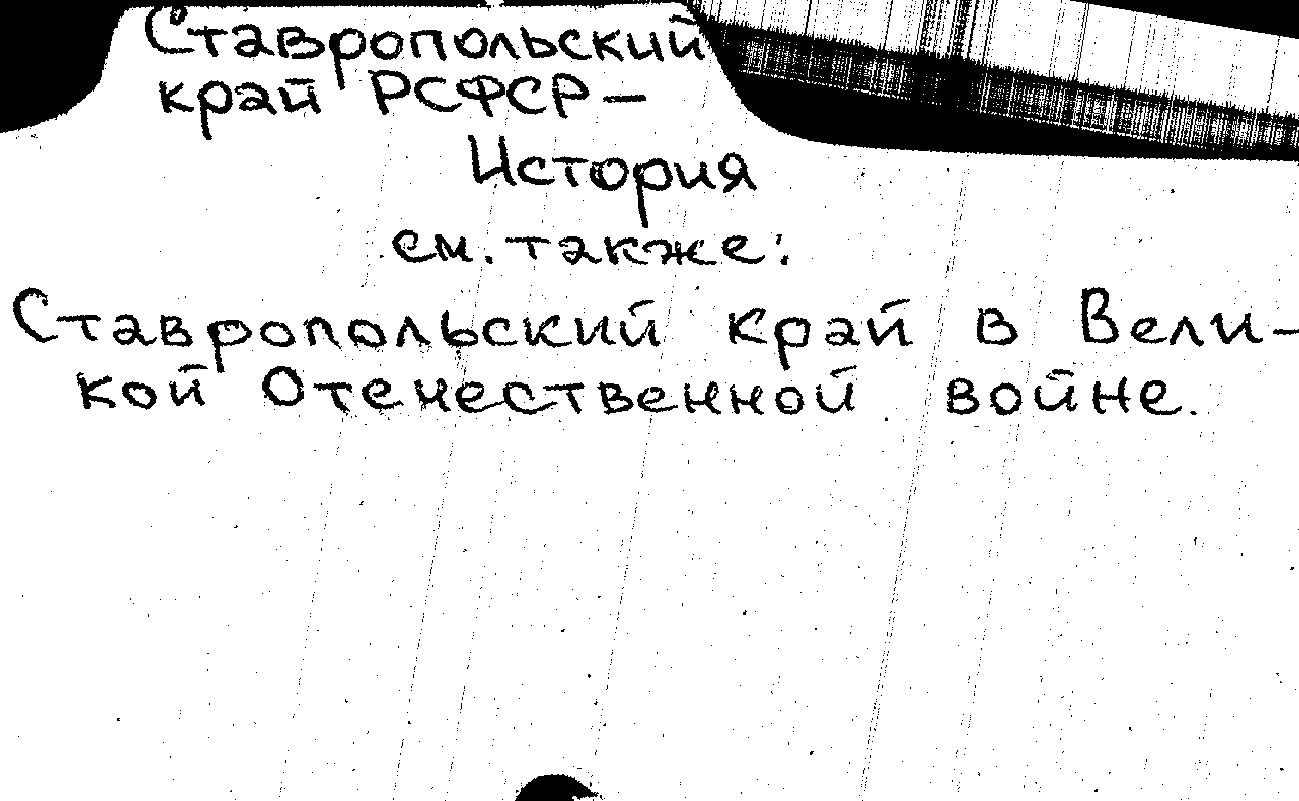 Ставропольский
край РСФСР –
История
см. также:
Ставропольский край в Вели-
кой Отечественной войне.